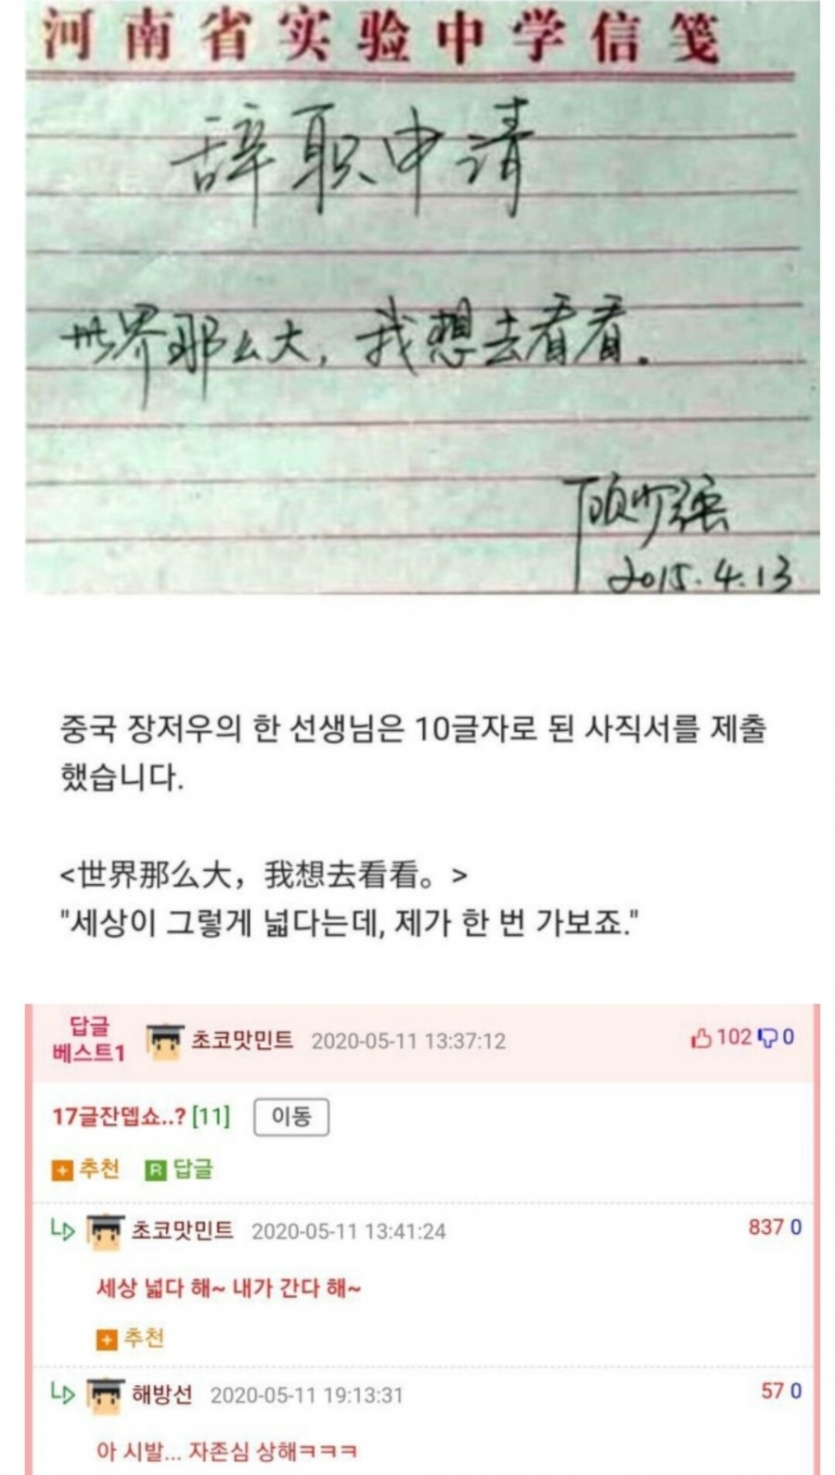 河南省实验中学信笺
辞职申请
世界那么大，我想去看看。
顾少强
2015.4.13
중국 장저우의 한 선생님은 10글자로 된 사직서를 제출
했습니다.
<世界那么大，我想去看看。>
"세상이 그렇게 넓다는데, 제가 한 번 가보죠."
답글
베스트1 초코맛민트 2020-05-11 13:37:12 102 0
17글잔뎁쇼..? [11] 이동
+ 추천 R 답글
초코맛민트 2020-05-11 13:41:24 837 0
세상 넓다 해~ 내가 간다 해~
+ 추천
해방선 2020-05-11 19:13:31 57 0
아 시발... 자존심 상해ㅋㅋㅋ